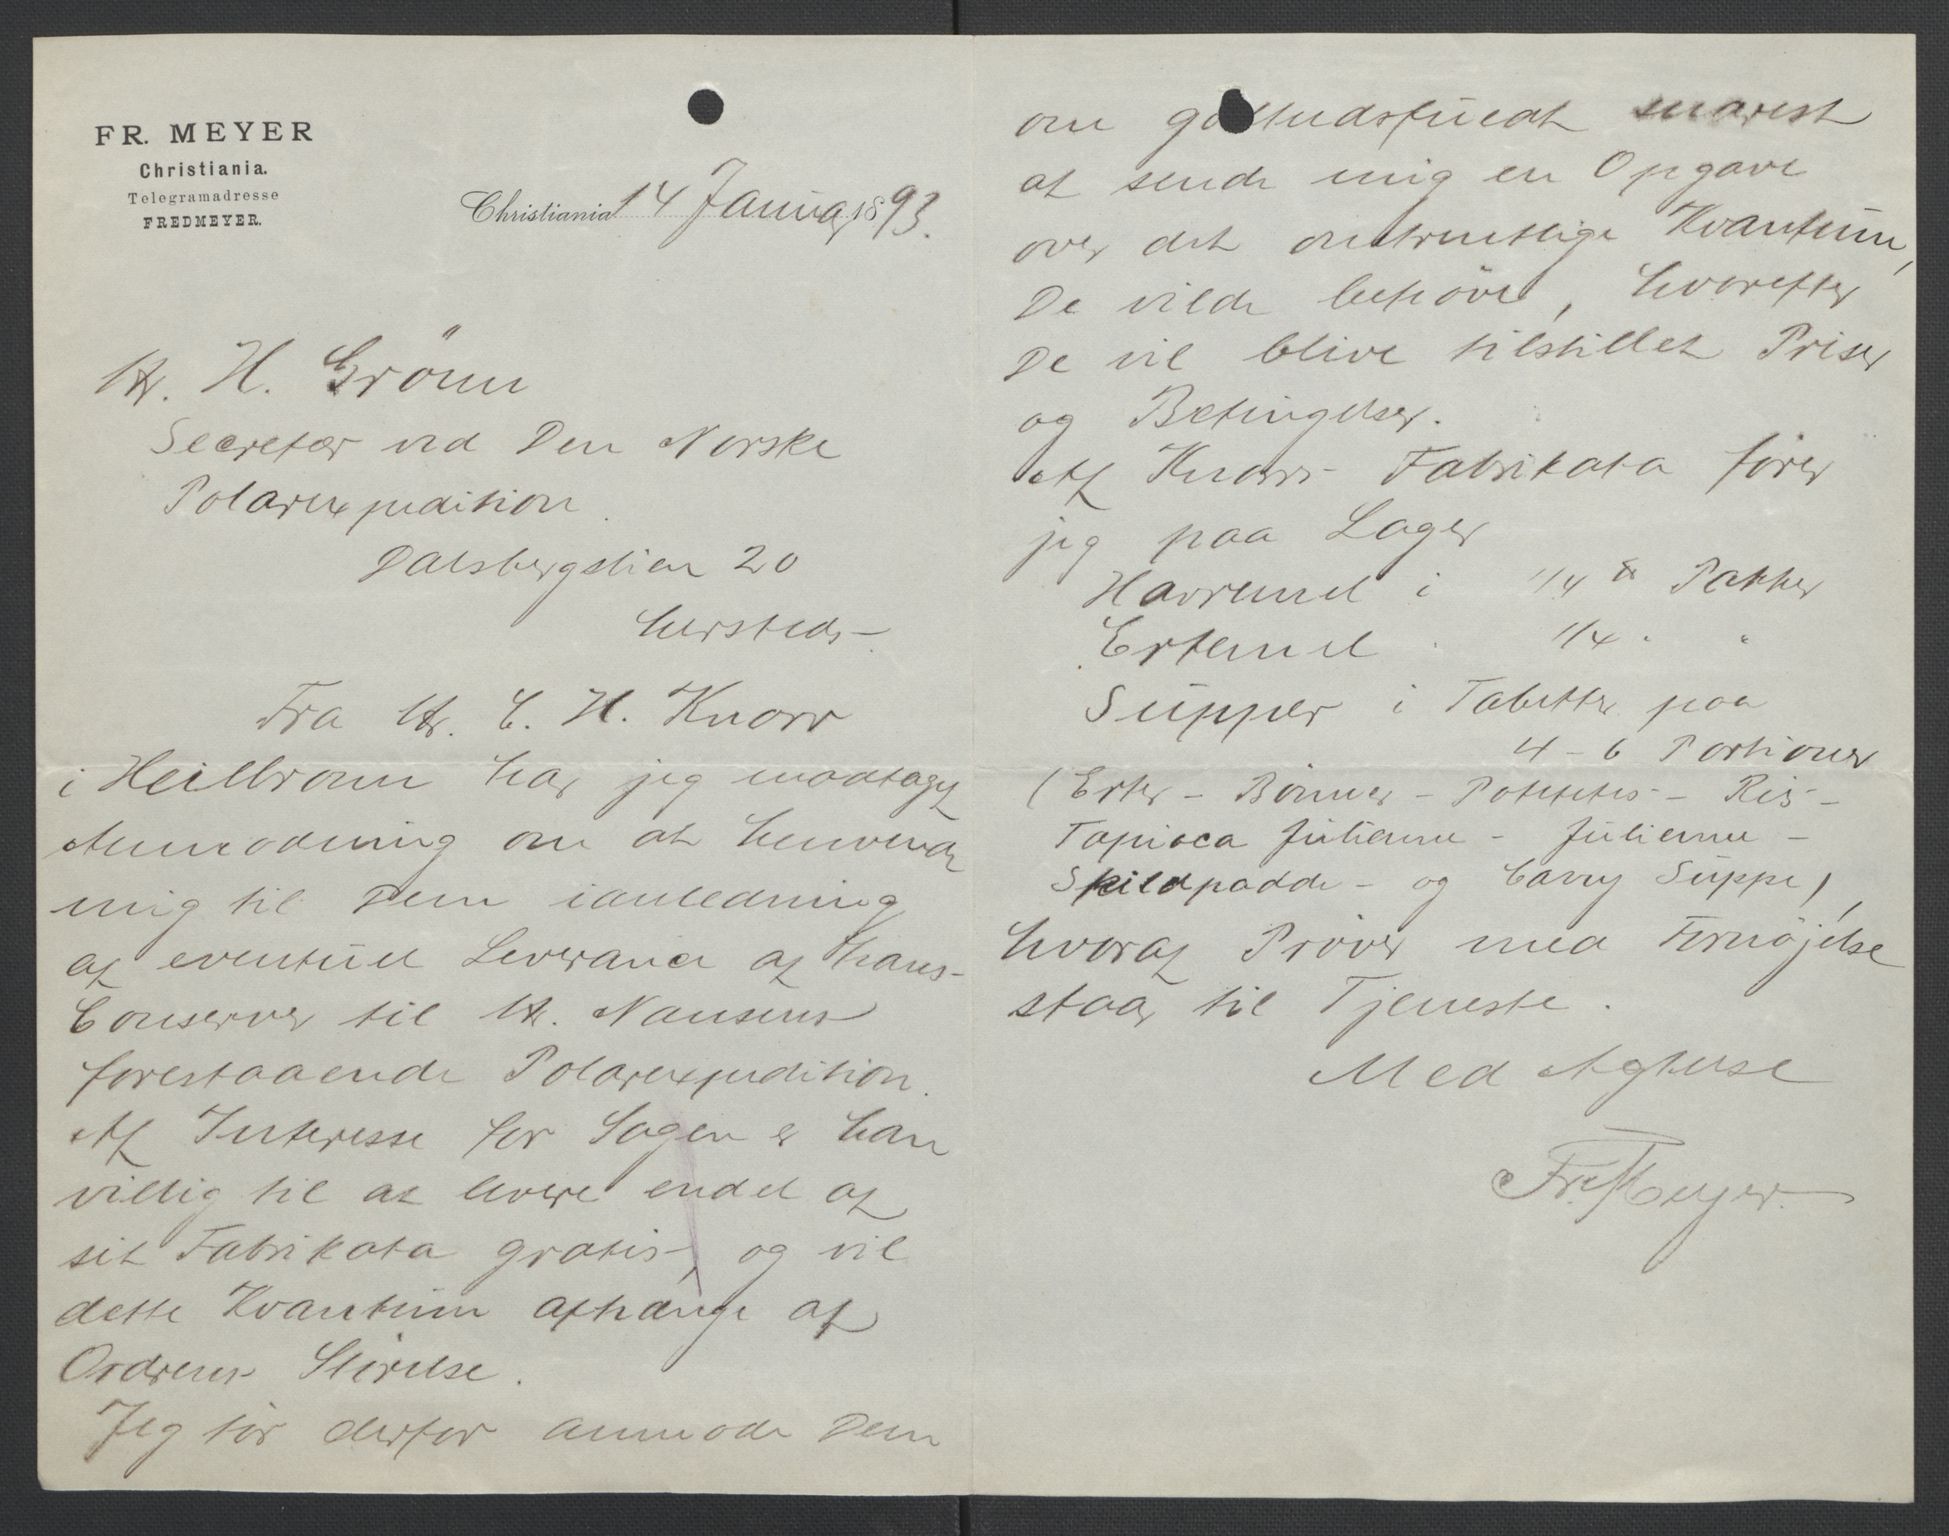 FR. MEYER
Christiania.
Telegramadresse
FREDMEYER.
Christiania 14 Januar 1893.
Hr. H. Grönn
Secretær ved Den Norske
Polarexpedition
Dalsbergstien 20
hersteds
Fra Hr. C. H. Knorr
i Heilbronn har jeg modtaget
Anmodning om at henvende
mig til Dem i anledning
af eventuel Leverance af hans
Conserver til Hr. Nansens
forestaaende Polarexpedition.
Af Interesse for Sagen er han
villig til at levere endel af
sit Fabrikata gratis, og vil
dette Kvantum afhænge af
Ordrens Störelse.
Jeg tör derfor anmode Dem
om godhedsfuldt snarest
at sende mig en Opgave
over det omtrentlige Kvantum,
De vilde behöve, hvorefter
De vil blive tilstillet Priser
og Betingelser.
Af Knorrs Fabrikata förer
jeg paa Lager
Havremel i 1/4 ℔ Pakker
Ertemel " 1/4 " "
Supper i Tabletter paa
4-6 Portioner
(Erter - Bönner - Potetes - Ris -
Tapioca Julienne - Julienne -
Skildpadde - og Carry Suppe),
hvoraf Pröver med Fornöjelse
staar til Tjeneste.
Med Agtelse
Fr. Meyer.